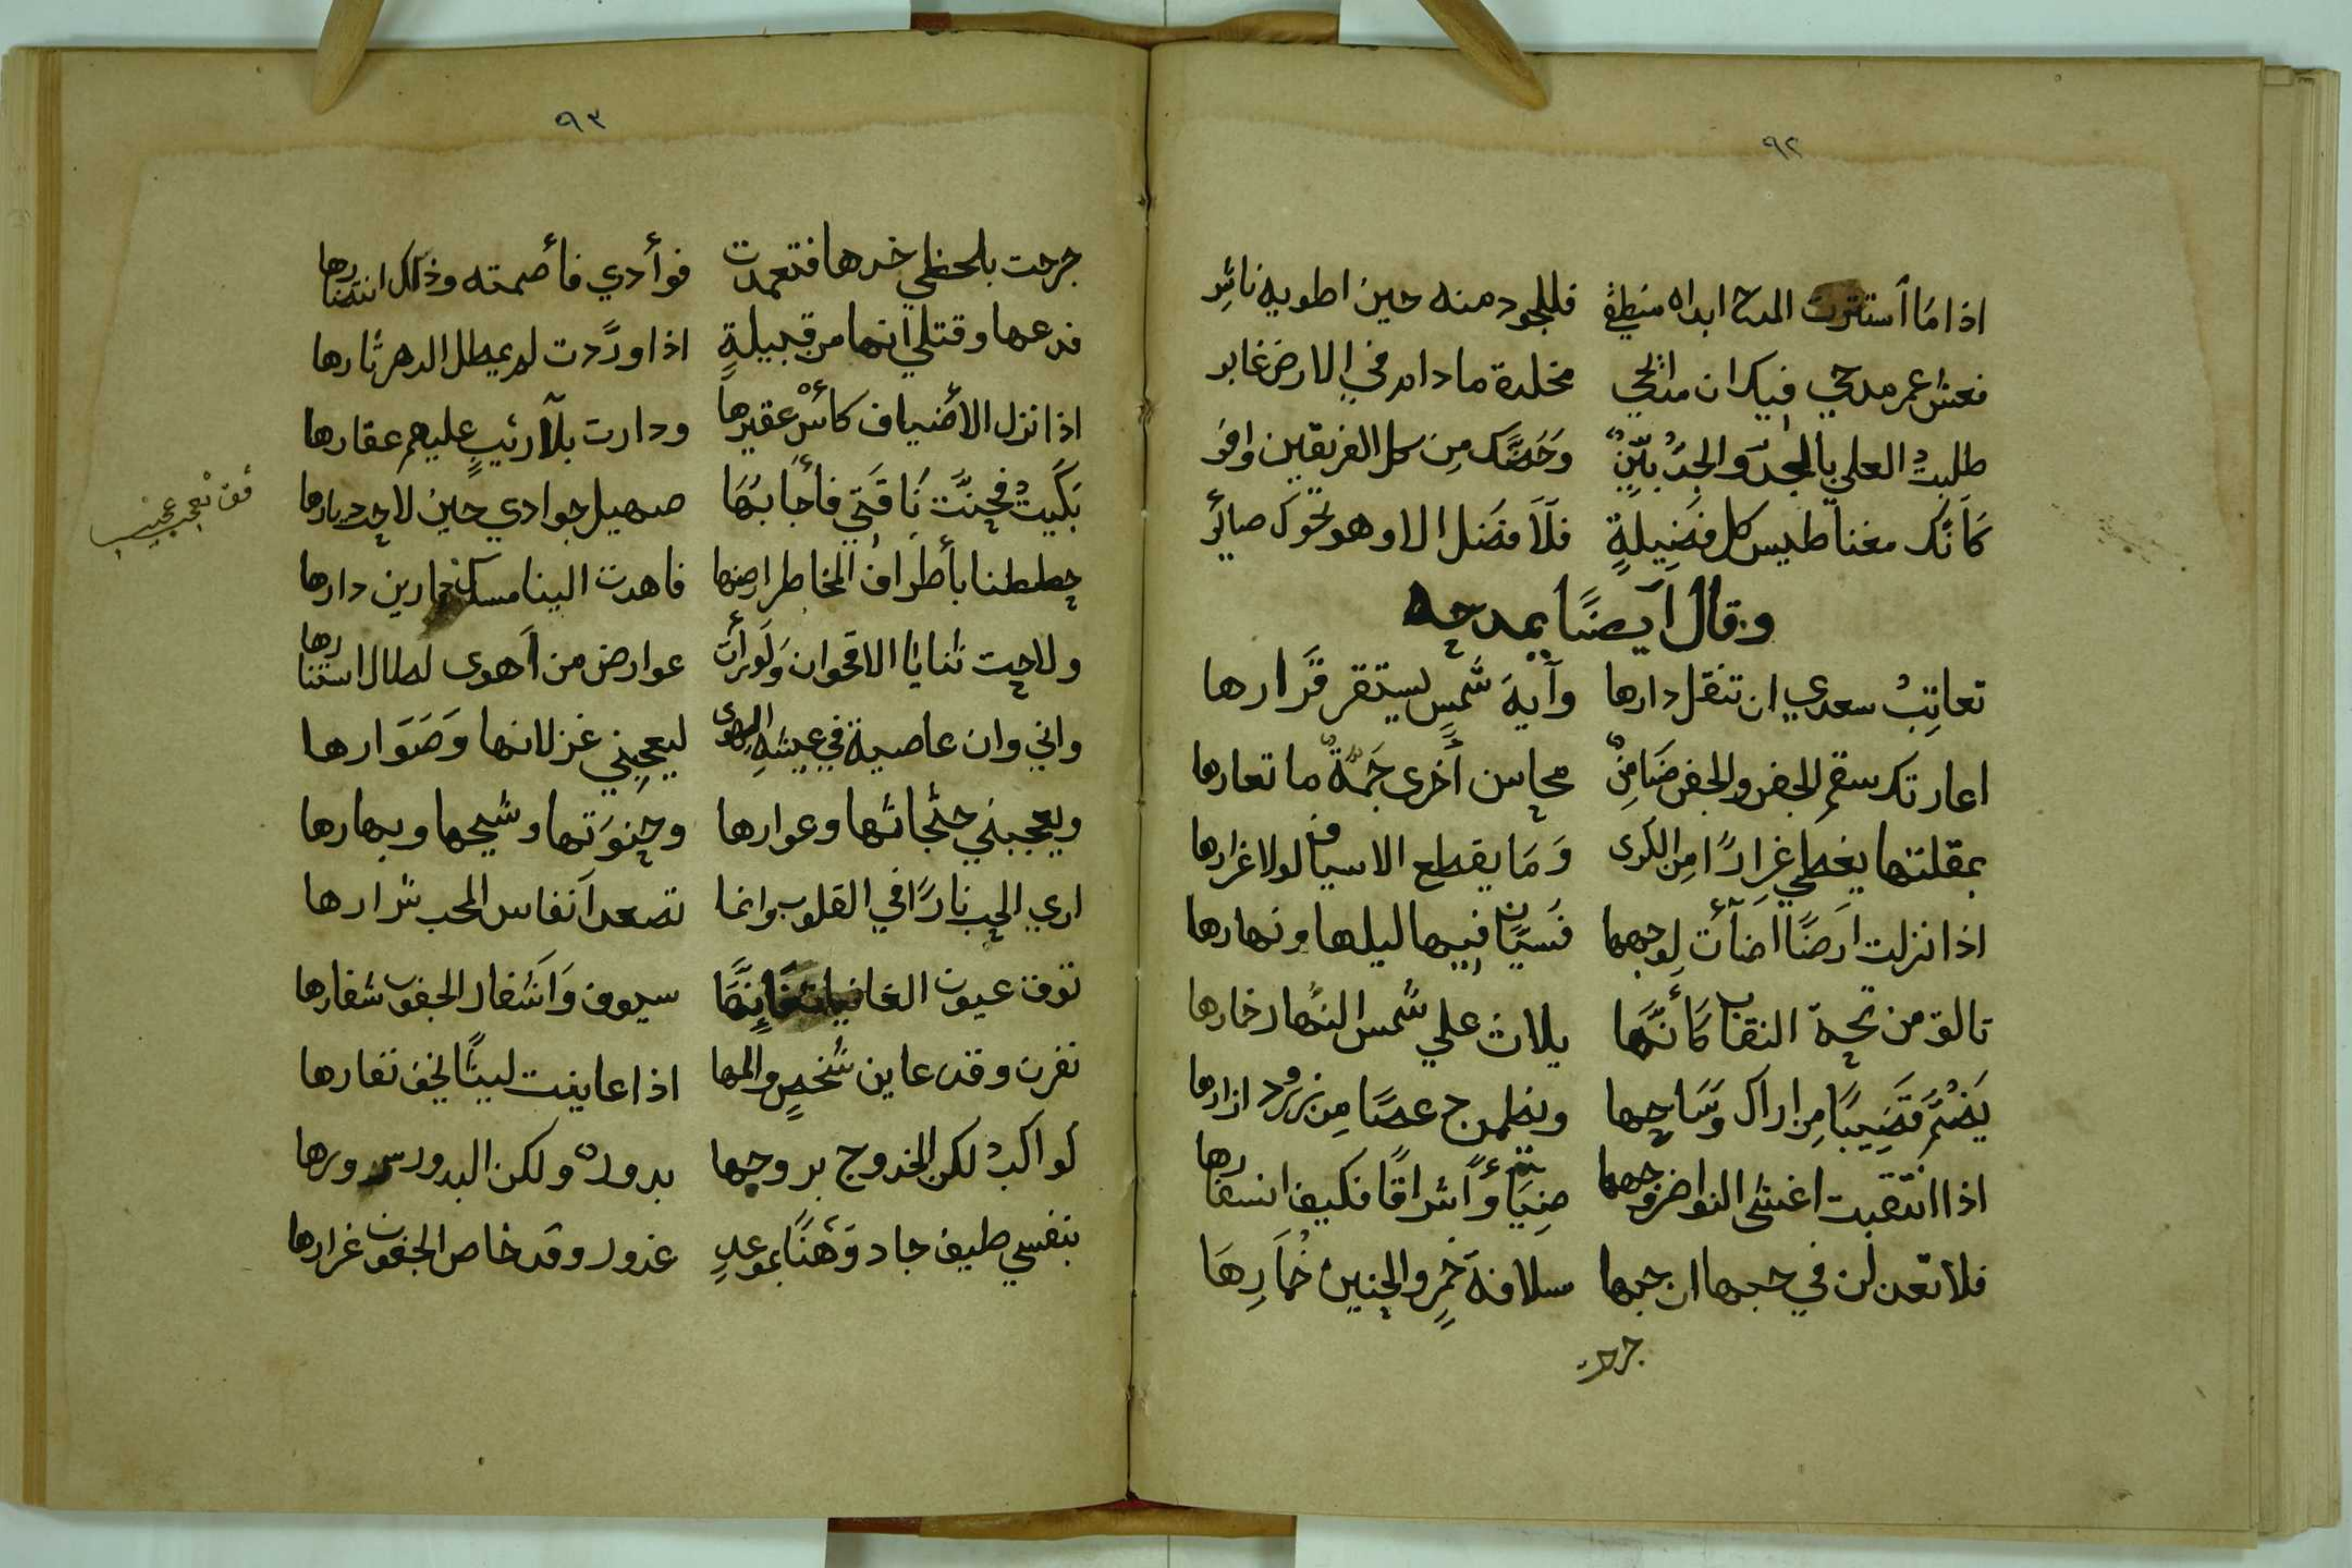 ٩٢
اذا ما أستترت المدح ابداه منطقي فللجود منه حين اطويه ناشر
فعش عمر مدحي فيك ان مدائحي مخلدة ما دام في الارض غابر
طلبت العلى بالجد والجد بيّن وحضّك من كل الفريقين وافر
كأنك مغناطيس كل فضيلةٍ فلا فضل الا وهو نحوك صائر
وقال أيضًا يمدحه
تعاتب سعدي ان تنقل دارها وآية شمسٍ يستقر قرارها
اعارتك سقم الجفن والجفن ضامنٌ محاسن أخرى جمةٌ ما تعارها
بمقلتها يغطي غرارًا من الكرى وما يقطع الاسياف لولا غرارها
اذا نزلت ارضًا اضأت لوجهها فسيّان فيها ليلها ونهارها
تالق من تحت النقاب كأنها يلاث علي شمس النهار خمارها
يضم قضيبًا من اراك وشاحها ويظلم ج عصًا من زرود ازارها
اذا انتقبت اغشى النواضر وجهها ضيًا وأشراقًا فكيف انسفارها
فلا تعذلن في حبها ان حبها سلافة خمرٍ والحنين خمارها
جرحت
٩٣
جرحت بلحظي خدها فتعمدت فوأدي فأصمته وذلك انتصارها
فدعها وقتلي انها من قبيلةٍ اذا ودّت لم يمطل الدهر ثارها
اذا نزل الأضياف كأس عقيرها ودارت بلا ريبٍ عليهم عقارها
بكيت فحنّت ناقتي فأجابها صهيل جوادي حين لاحت ديارها
حططنا بأطراف المخاطر ارضها فاهدت الينا مسك دارين دارها
ولاحت ثنايا الاقحوان ولو رأت عوارض من أهوى لطال استتارها
واني وان عاصية في عيشة الهوى ليعجبني غزلانها وصوارها
ويعجبني جثجاثها وعوارها وحنوتها وشيحها وبهارها
ارى الحب نارًا في القلوب وانما تصعد أنفاس المحب شرارها
توق عيون الغانيات فإنها سيوف وأشفار الجفون شفارها
نفرن وقد عاين شخصٍ والمها اذا عاينت ليثًا يخف نفارها
كواكب لكن الخدوج بروجها بدور ولكن البدور سرورها
بنفسي طيف جاد وهنًا بموعدٍ غدور وقد خاص الجفون غرارها